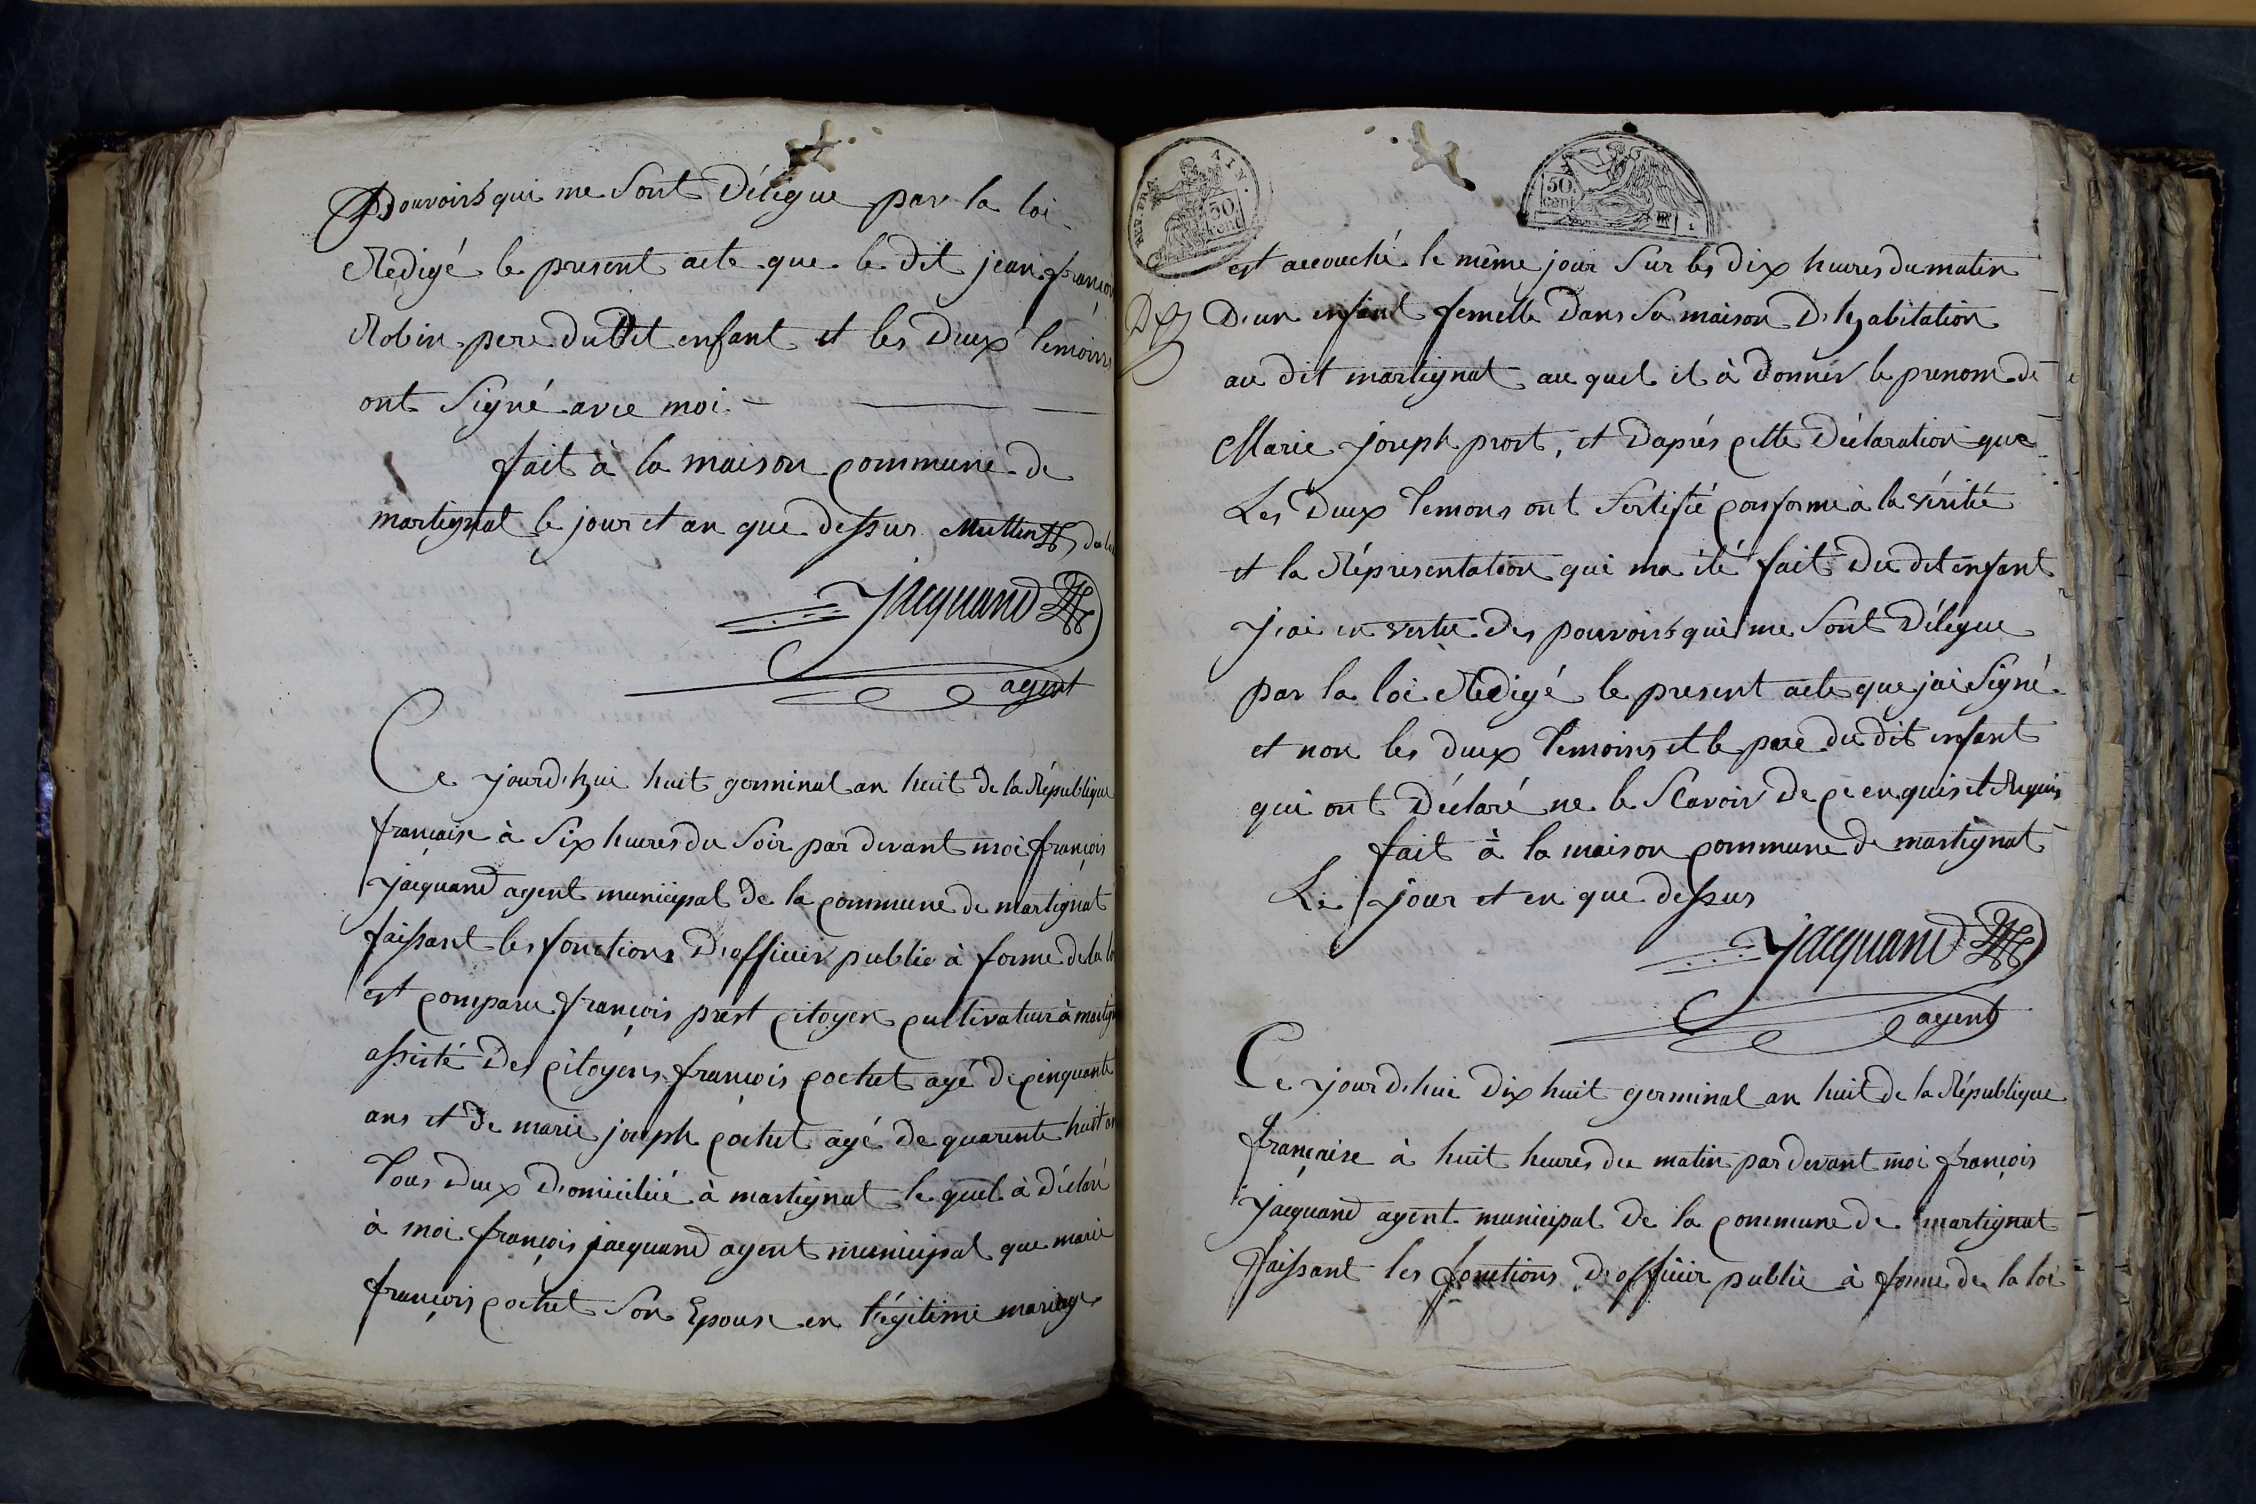 Pouvoirs qui me sont délégue par la loi
Redigé le present acte que le dit jean françois
Robin pere dudit enfant et les deux temoins
ont signé avec moi
fait à la maison commune de
martignat le jour et an que dessus
jacquand
agent
Ce jourd'hui huit germinal an huit de la République
française à six heures du soir par devant moi françois
jacquand agent municipal de la commune de martignat
faissant les fonctions d'officier public à forme de la loi
est comparu françois prost citoyen cultivateur à
assisté des citoyens françois cochet agé de cinquante
ans et de marie joseph cochet agé de quarente huit
tous deux domicilié à martignat le quel à déclaré
à moi françois jacquand agent municipal que marie
françois cochet son Epouse en légitime mariage
REP. FRA AIN.
50 cent
50. cent
est accouché le même jour sur les dix heures du matin
D'un enfant femelle dans sa maison d'habitation
au dit martignat au quel il à donner le prenom de
Marie joseph prost, et daprés cette déclaration que
Les deux temons ont sertifié conforme à la vérité
et la Réprésentation qui ma été fait du dit enfant
j'ai en vertu des pouvoirs qui me sont délégue
par la loi Redigé le present acte que jai signé
et non les deux temoins et le pere du dit enfant
qui ont déclaré ne le scavoir de ce enquis et Requis
fait à la maison commune de martignat
Le jour et en que dessus
jacquand
agent
Ce jourd'hui dix huit germinal an huit de la République
française à huit heures du matin par devant moi françois
jacquand agent municipal de la commune de martignat
faissant les fonctions d'officier public à forme de la loi